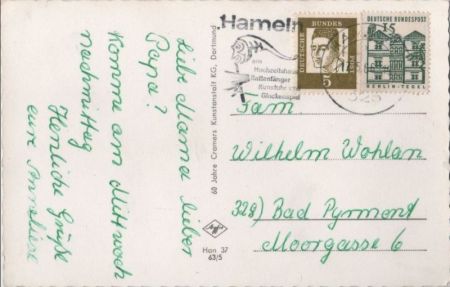 Liebe Mama lieber
Papa!
Komme am Mittwoch
nachmittag
Herzliche Grüße
eure Anneliese
60 Jahre Cramers Kunstanstalt KG, Dortmund
Han 37
63/5
Hameln
am
Hochzeitshaus
Rattenfänger
Kunstuhr und
Glockenspiel
DEUTSCHE BUNDESPOST
5
DEUTSCHE BUNDESPOST
15
BERLIN-TEGEL
325
Fam.
Wilhelm Wohlan
328) Bad Pyrmont
Moorgasse 6